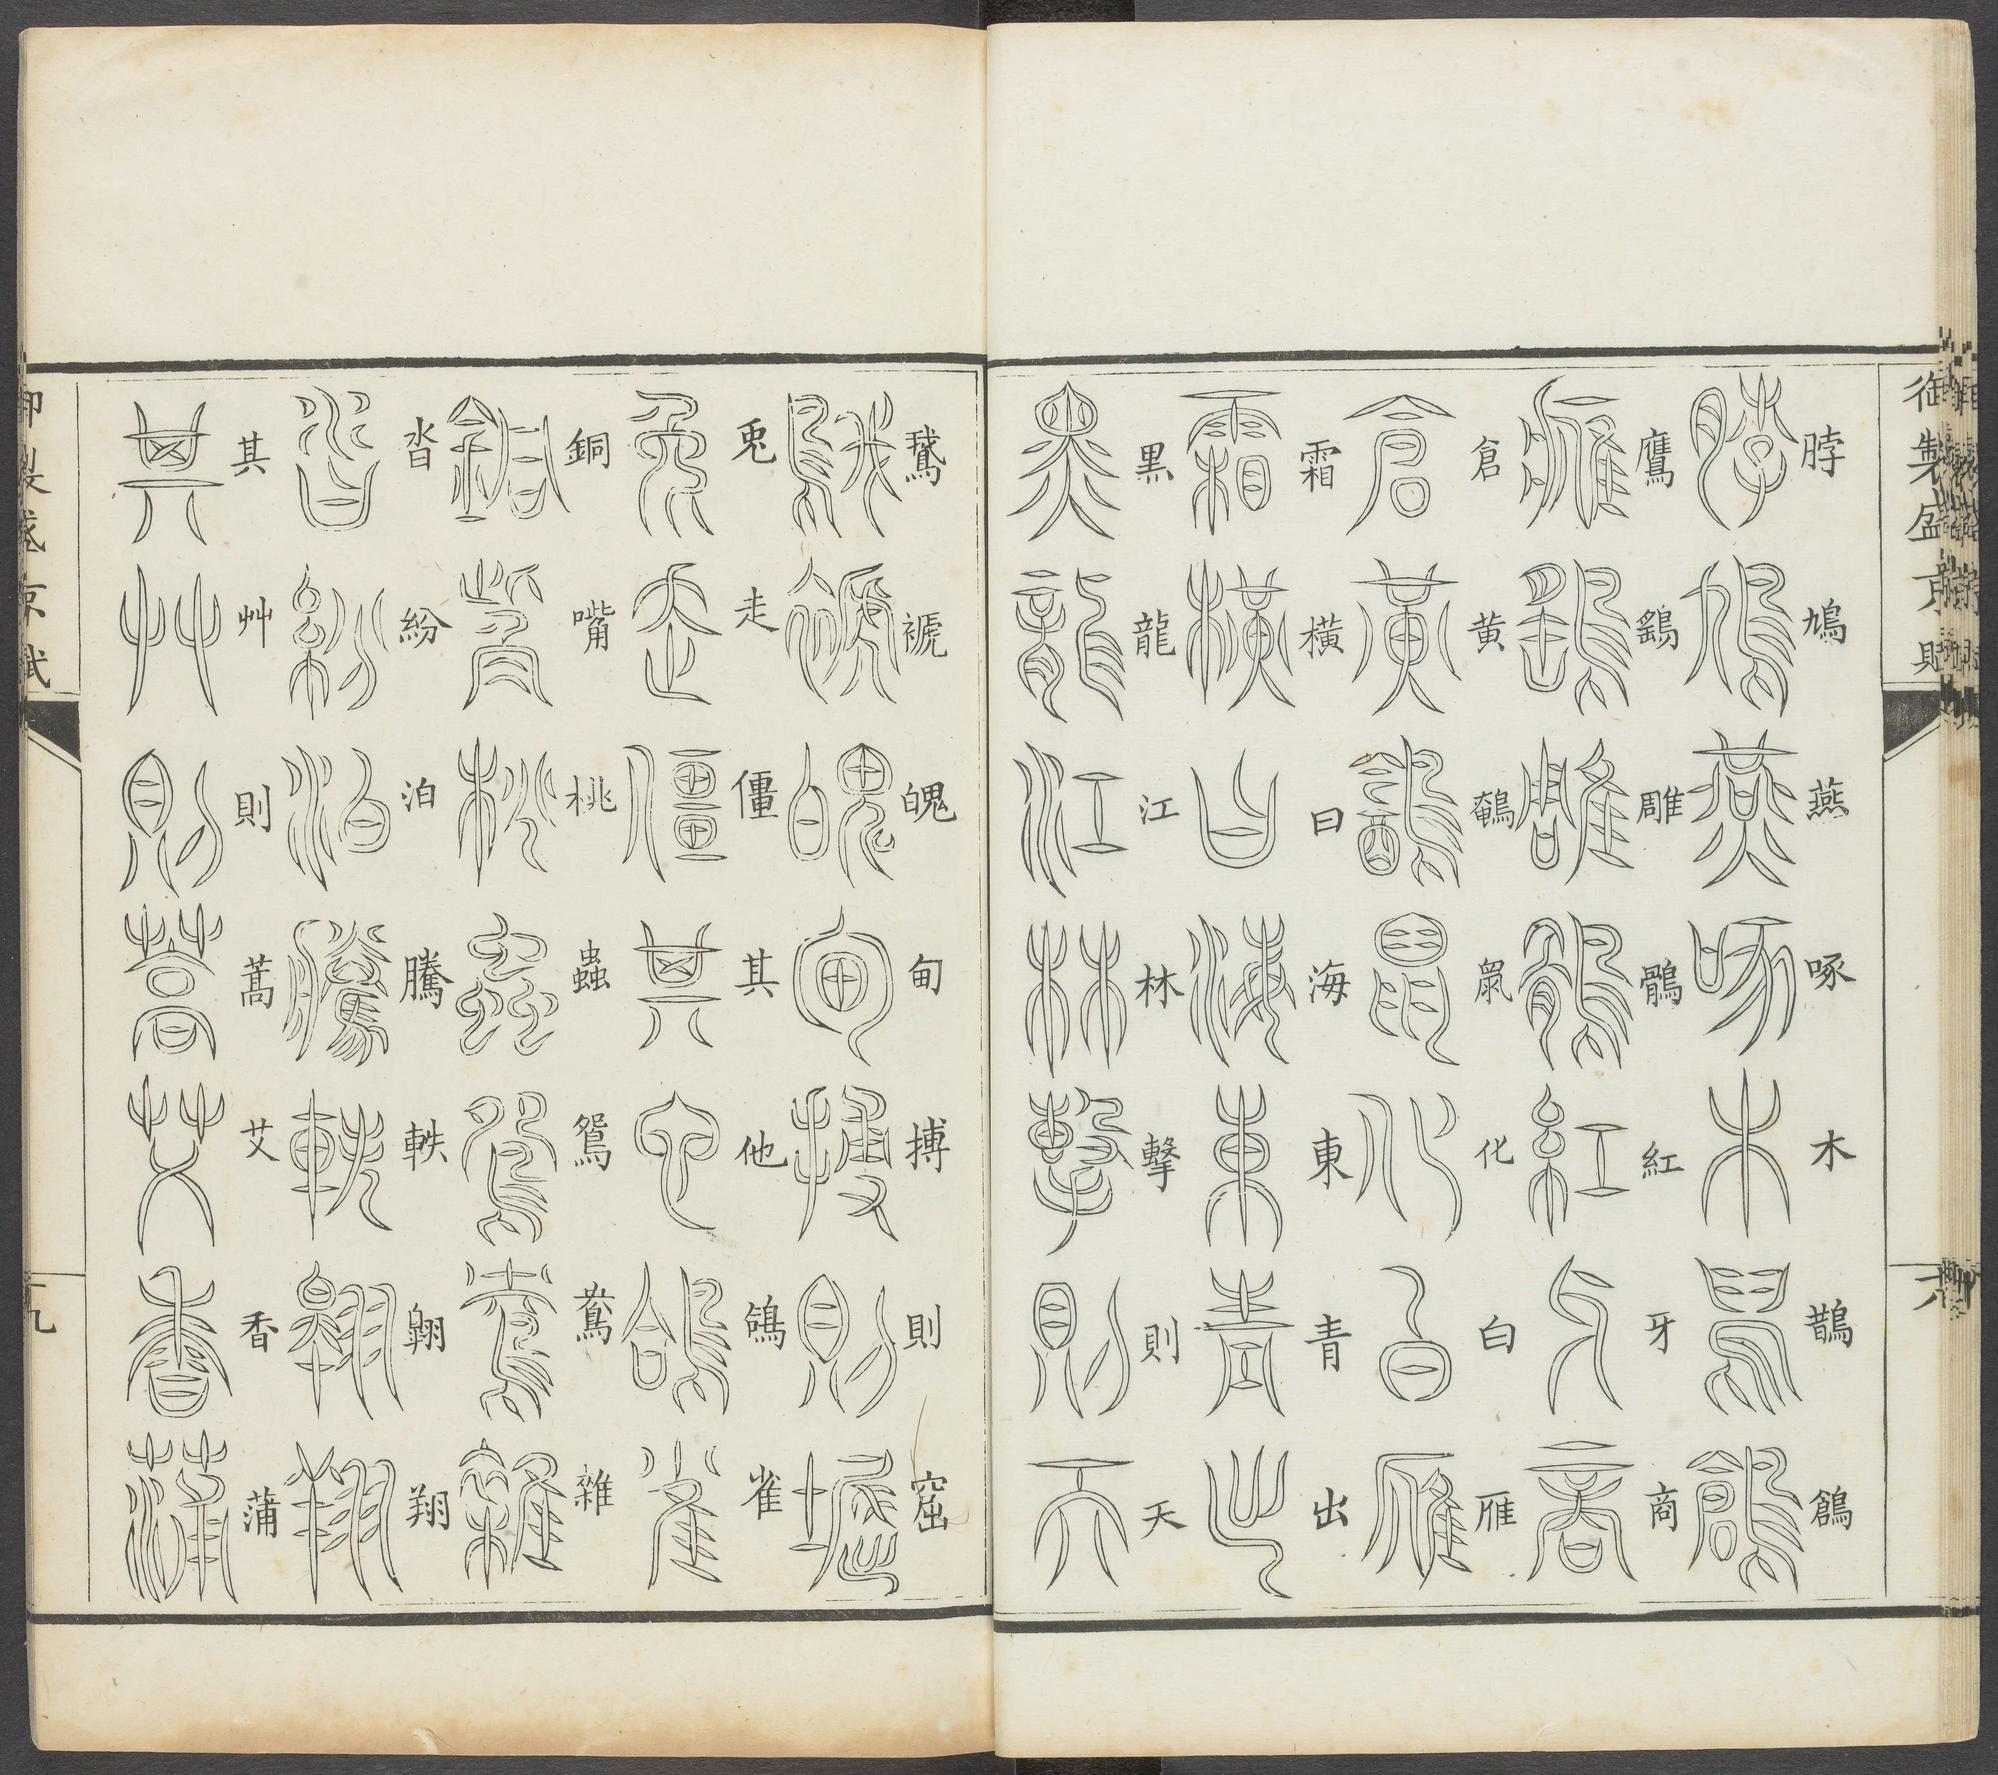 御製盛京賦
脖鳩燕啄木鵲鶬
鷹鷂雕鶻紅牙商
倉黄鵪鼠化白雁
霜橫曰海東青出
黑龍江林擊則天
鵞褫魄甸搏則窟
兎走僵其他鴿雀
銅嘴桃蟲鴛鴦雜
沓紛泊騰軼翱翔
其艸則蒿艾香蒲
御製盛京賦